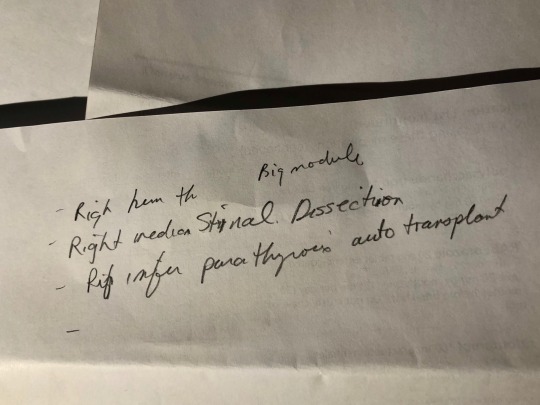 Big nodule
- Righ hem th
- Right median Stirnal. Dissection
- Rif infer parathyroi auto transplant
-